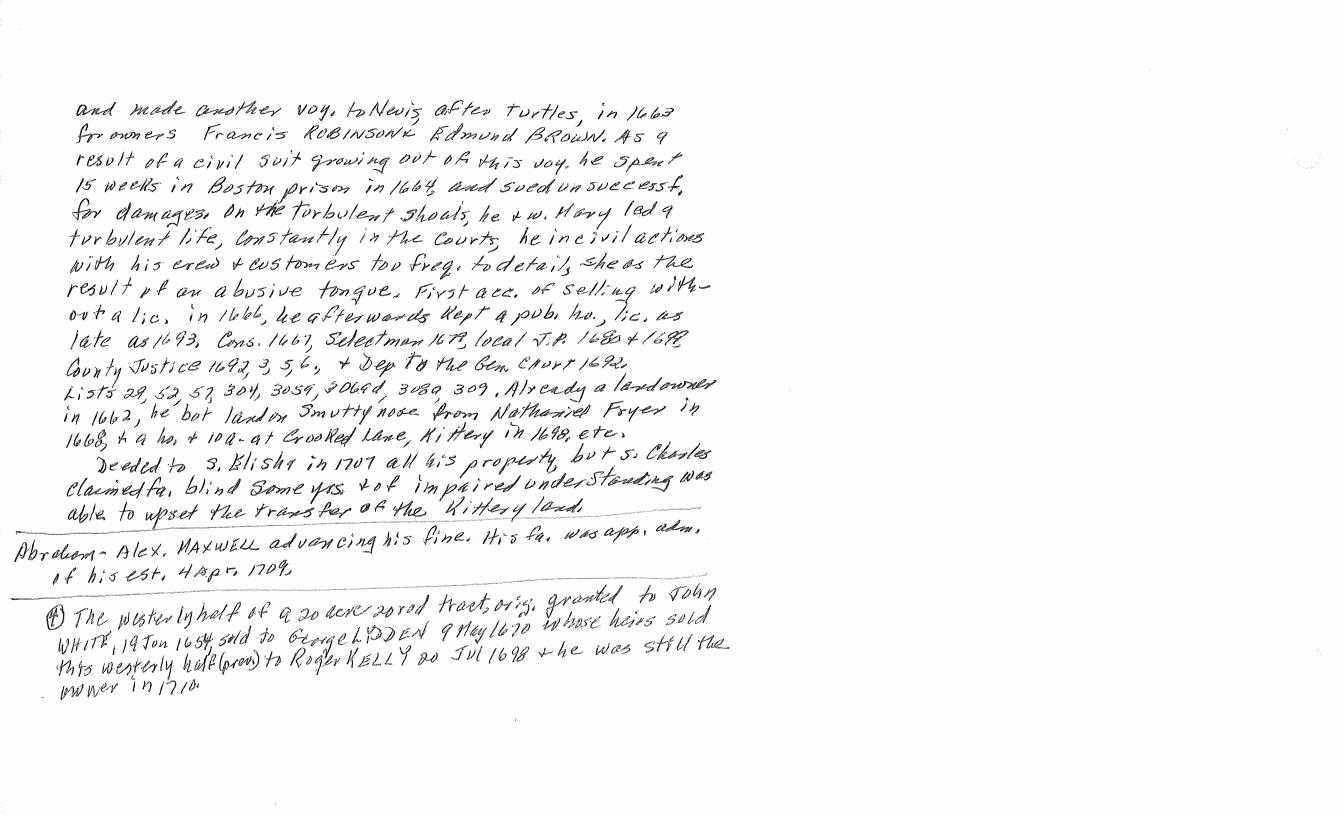 and made another voy. to Nevis after turtles, in 1663
for owners Francis ROBINSON & Edmund BROWN. As a
result of a civil suit growing out of this voy. he spent
15 weeks in Boston prison in 1664, and sued unsuccessf.
for damages. On the turbulent shoals, he + w. Mary led a
turbulent life, Constantly in the Courts, he in civil actions
with his crew + customers too freq. to detail, she as the
result of an abusive tongue. First acc. of selling with-
out a lic. in 1666, he afterwards kept a pub. ho., lic. as
late as 1693. Cons. 1667, Selectman 1679, local J.P. 1680 + 1699,
County Justice 1692, 3, 5, 6., + Dep to the Gen. Court 1692.
Lists 29, 52, 57, 304, 305a, 306a d, 308a, 309. Already a landowner
in 1662, he bot land on Smuttynose from Nathaniel Fryer in
1668, + a ho. + 10 a. at Crooked Lane, Kittery in 1698, etc.
Deeded to s. Elisha in 1707 all his property, but s. Charles
claimed fa. blind some yrs. + of impaired understanding was
able to upset the transfer of the Kittery land.
Abraham - Alex. MAXWELL advancing his fine. His fa. was app. adm.
of his est. 4 Apr. 1709.
④ The westerly half of a 20 acre 20 rod tract, orig. granted to John
WHITE, 19 Jun 1654, sold to George LYDDEN 9 May 1670 whose heirs sold
this westerly half (prev.) to Roger KELLY 20 Jul 1698 + he was still the
owner in 1710.